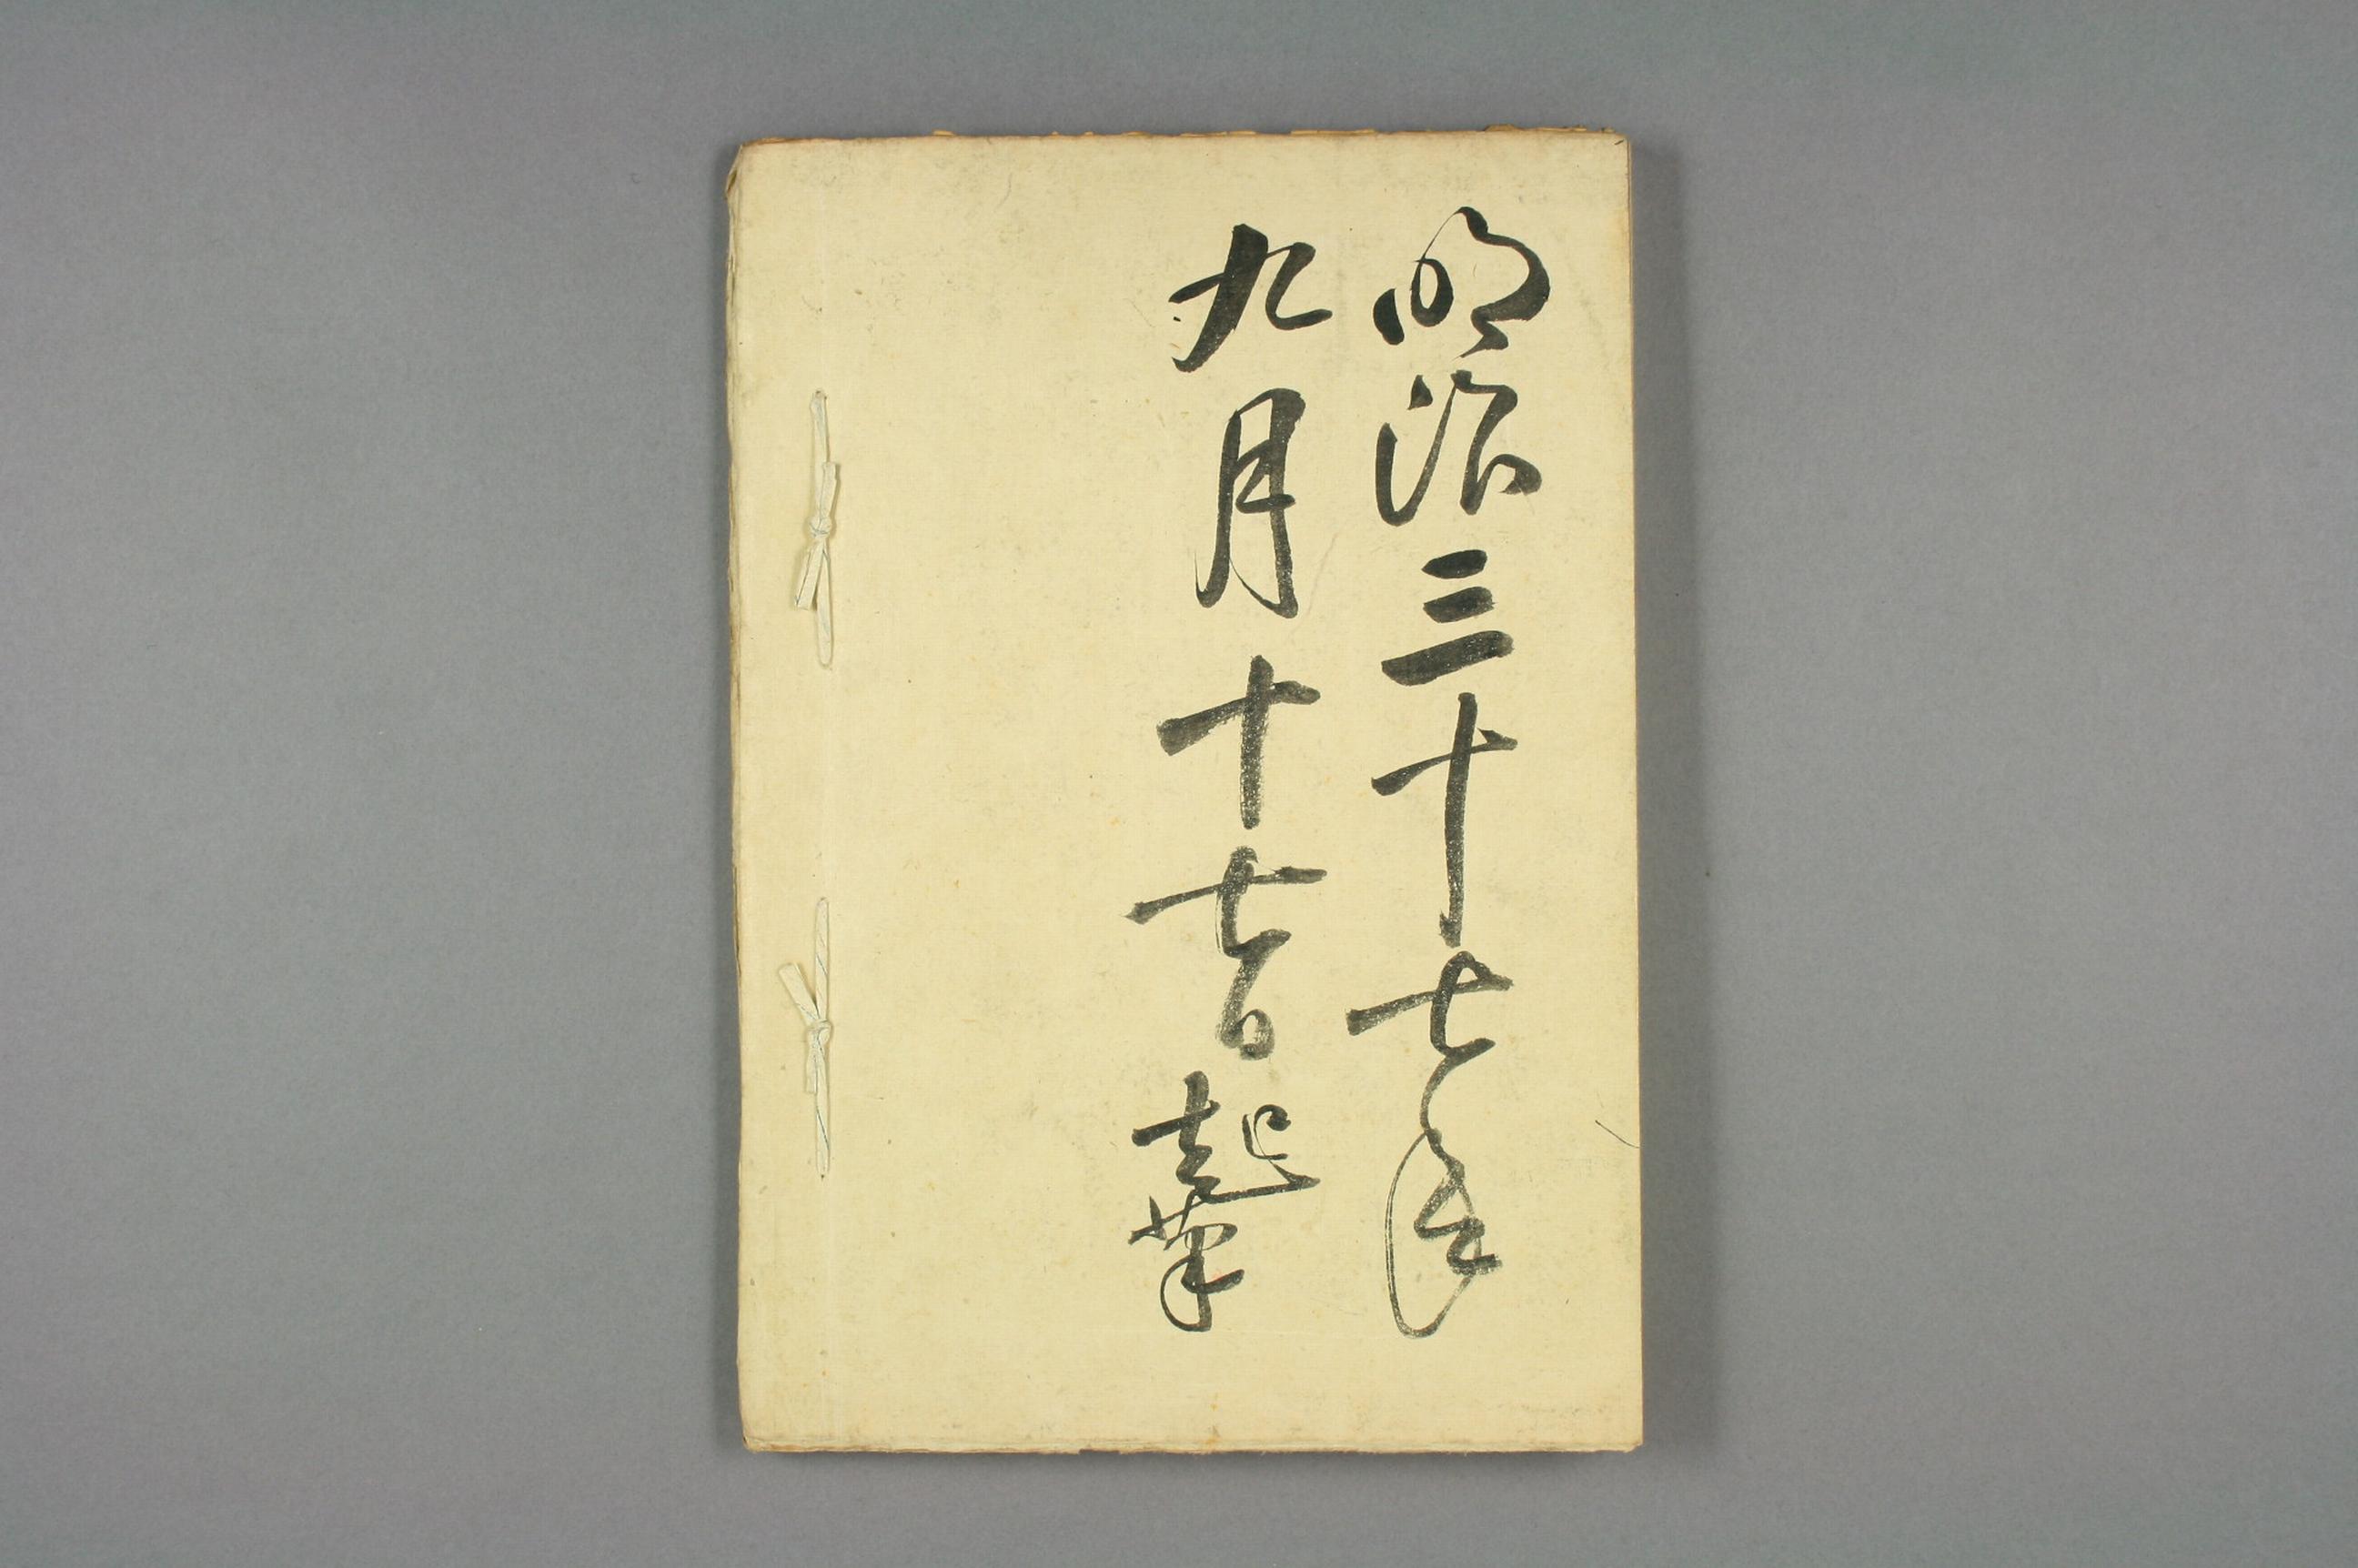 明治三十七年
九月十七日起筆